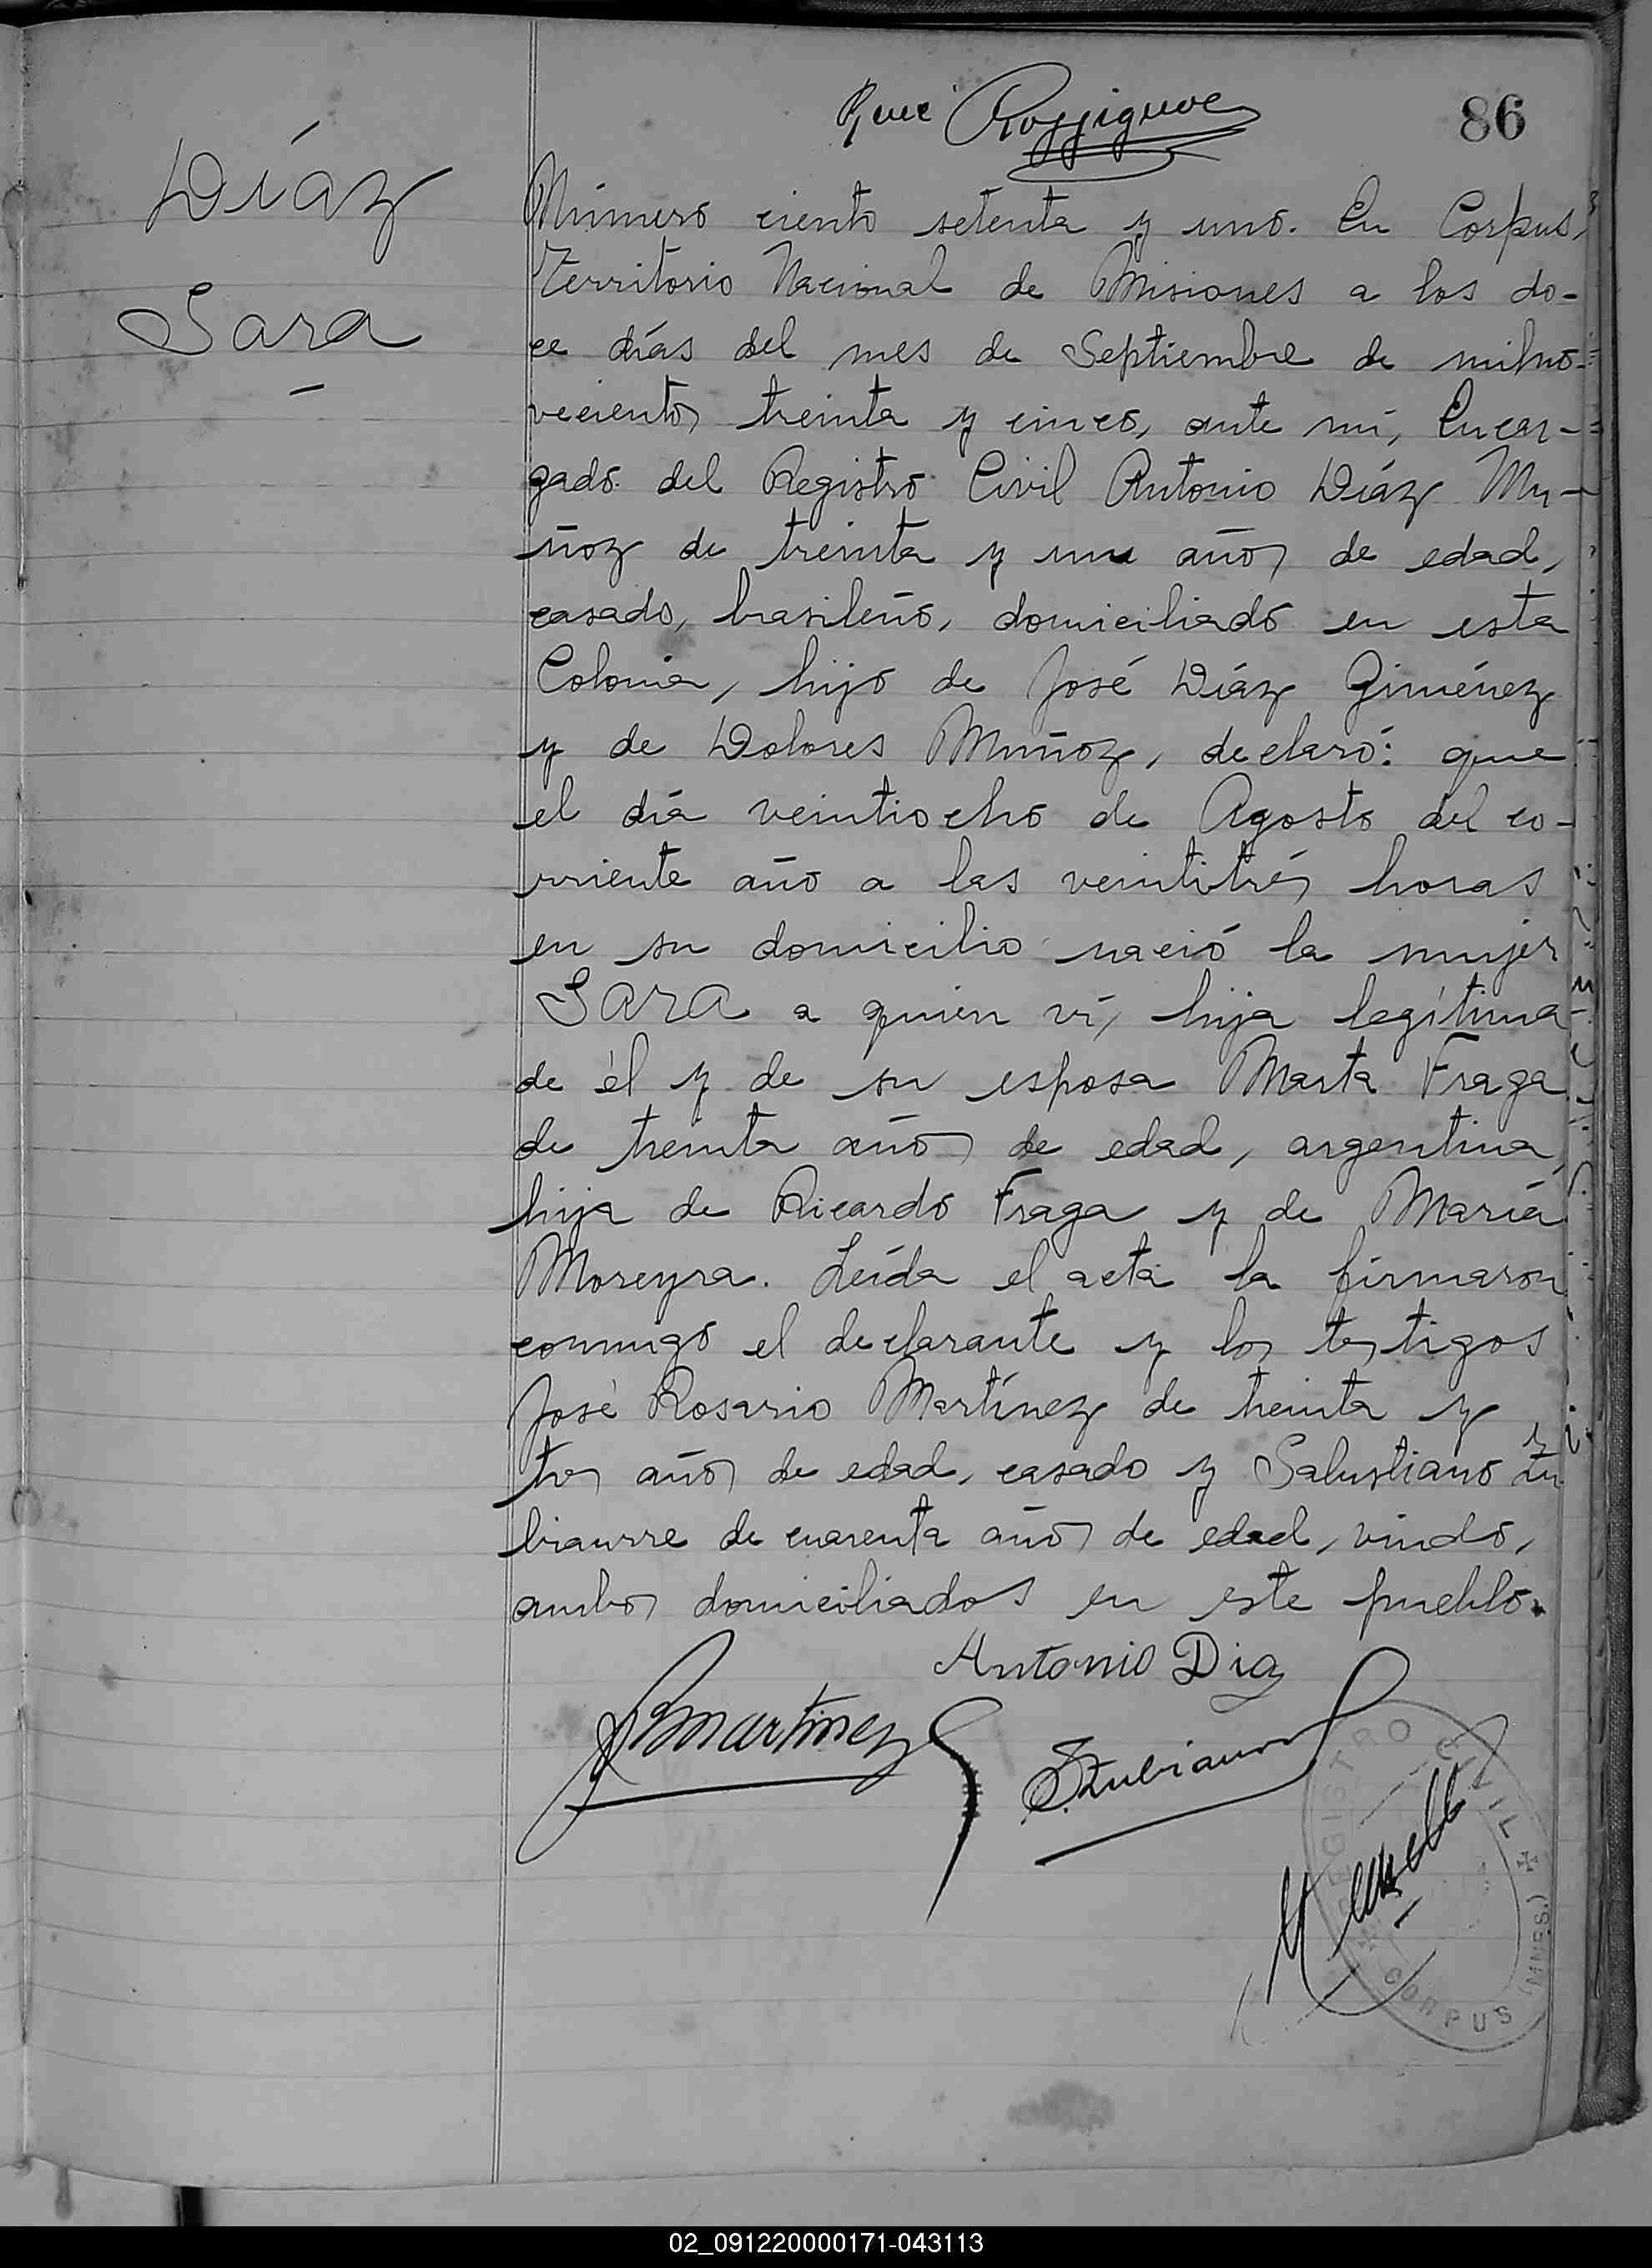 86
Díaz
Sara
Número ciento setenta y uno. En Corpus,
Territorio Nacional de Misiones a los do-
ce días del mes de Septiembre de mil no-
vecientos treinta y cinco, ante mí, Encar-
gado del Registro Civil Antonio Díaz Mu-
ñoz de treinta y un años de edad,
casado, brasileño, domiciliado en esta
Colonia, hijo de José Díaz Giménez
y de Dolores Muñoz, declaró: que
el día veintiocho de Agosto del co-
rriente año a las veintitrés horas
en su domicilio nació la mujer
SARA a quien ví, hija legítima
de él y de su esposa Marta Fraga
de treinta años de edad, argentina,
hija de Ricardo Fraga y de María
Moreyra. Leída el acta la firmaron
conmigo el declarante y los testigos
José Rosario Martínez de treinta y
tres años de edad, casado y Salustiano Zu
biaurre de cuarenta años de edad, viudo,
ambos domiciliados en este pueblo.
Antonio Diaz
Martinez
REGISTRO CIVIL
CORPUS (MNES.)
02_091220000171-043113